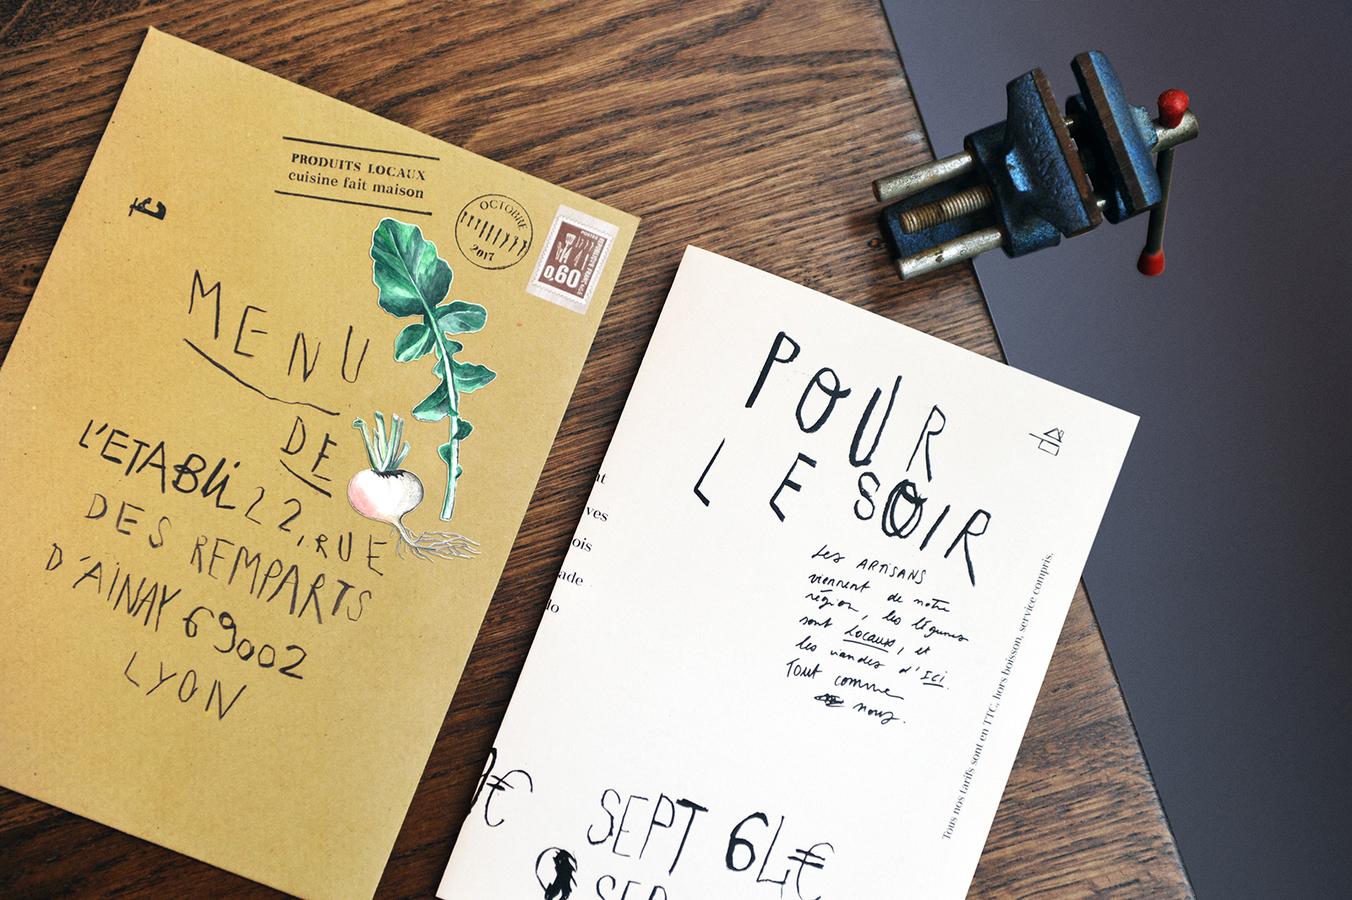 PRODUITS LOCAUX
cuisine fait maison
OCTOBRE
2017
POSTES
0,60
MENU
DE
L'ETABLi 22, RUE
DES REMPARTS
D'AINAY 69002
LYON
POUR
LE SOIR
Les ARTiSANS
viennent de notre
région, les légumes
sont locaux, et
les viandes d'ICi.
Tout comme
nous.
Tous nos tarifs sont en TTC, hors boisson, service compris.
nt
ves
ois
ade
lo
€
SEPT 6L€
SEP